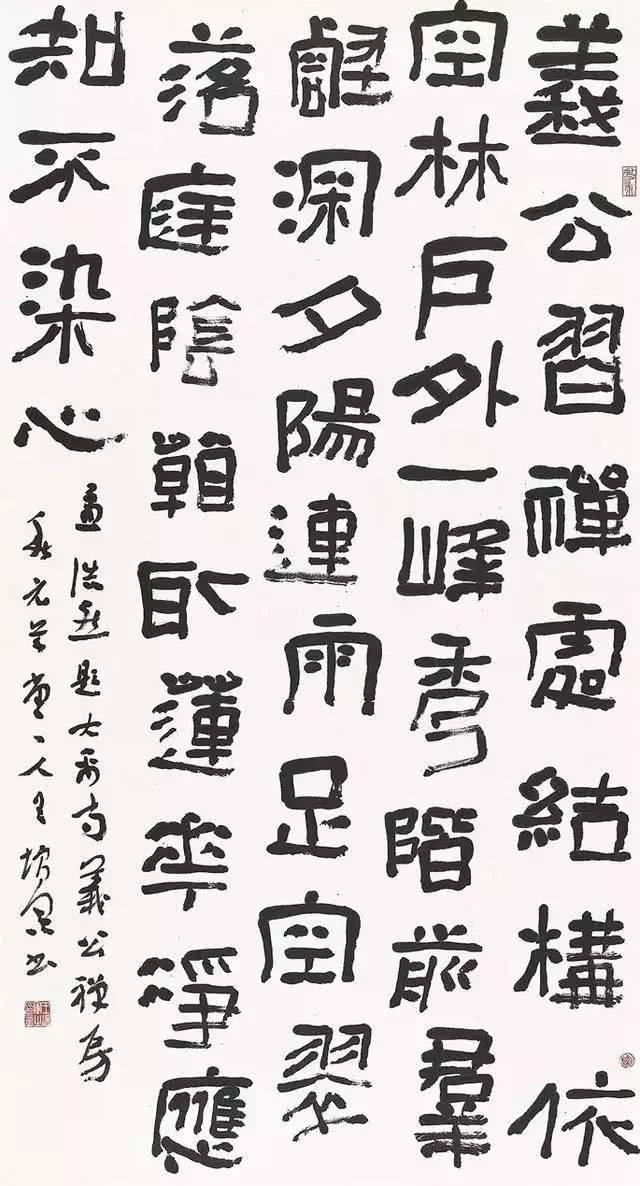 義公習禪處結構依
空林戶外一峰秀階前羣
壑深夕陽連雨足空翠
落庭陰看取蓮華淨應
知不染心
孟浩然題大禹寺義公禪房
一人王書